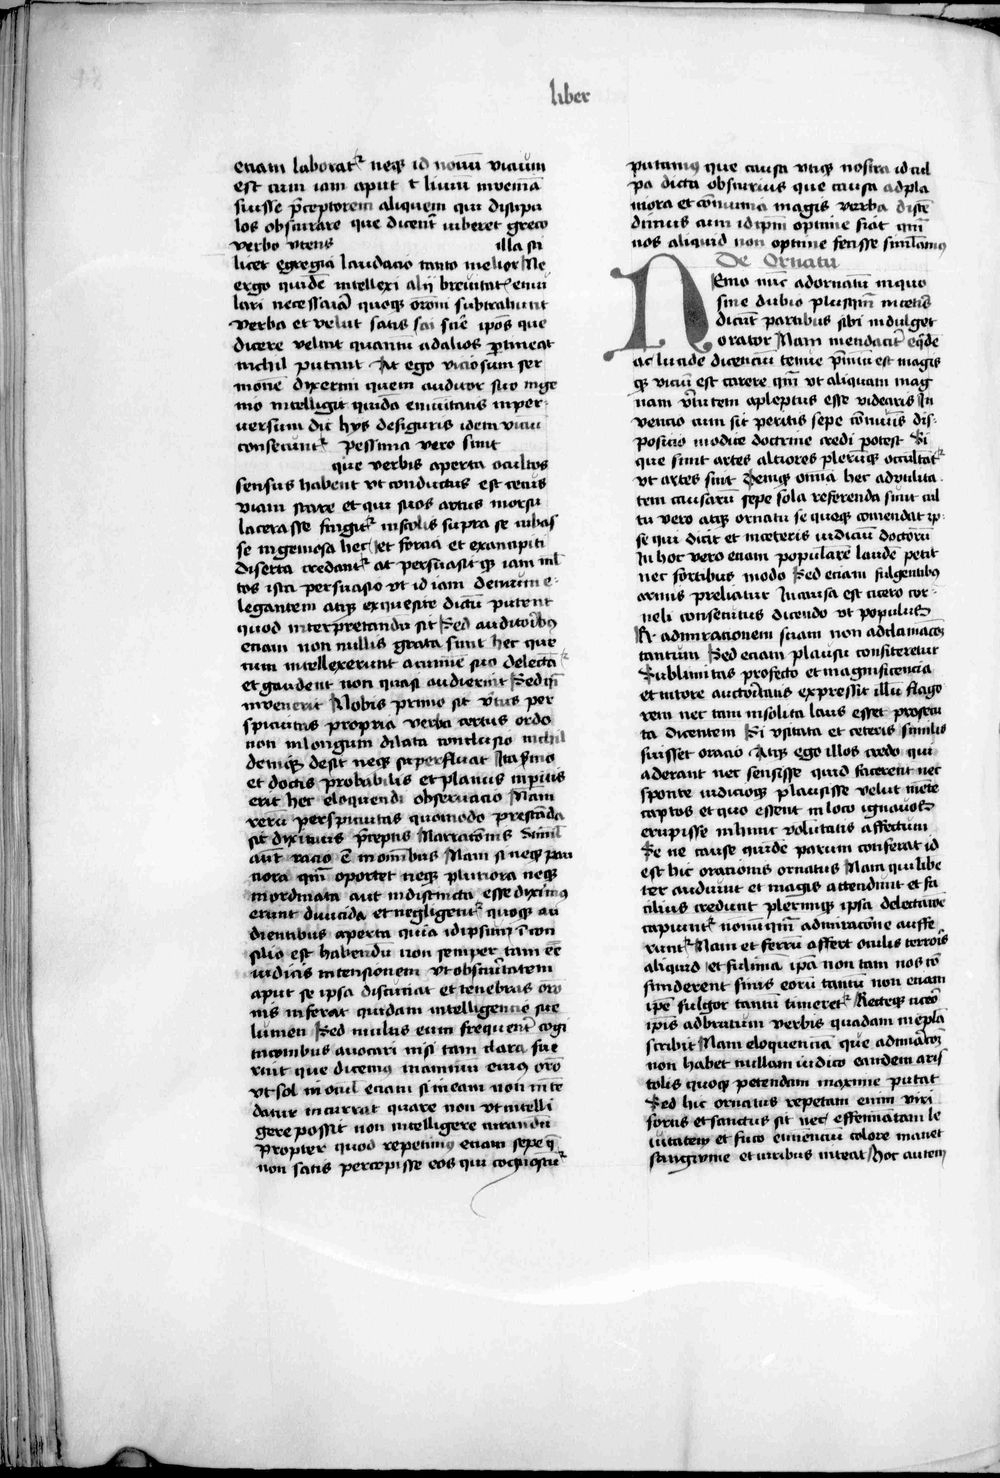 liber
etiam laborat᷑ neqꝫ id nouū vicium
est cum iam aput t liuiū inueniā
fuisse p̄ceptorem aliquem qui discipu
los obscurare que dicerēt iuberet greco
verbo vtens illa sci
licet egregia laudacio tanto melior Ne
ergo quidē intellexi alij breuitatē emu
lari necessariā quoqꝫ oroni subtrahunt
verba et velut satis sci scire ipōs que
dicere velint quantū ad alios p̲tineat
nichil putant At ego viciosum ser
monē dixerim quem auditor suo inge
nio intelligit quidā emutatis in per-
uersum dic hys defiguris idem viciū
consecunt᷑ Pessima vero sunt
que verbis aperta ocultos
sensus habent vt conductus est cecus
viam stare et qui suos artus morsu
lacerasse fingit᷑ in scolis supra se cubas
se ingeniosa hec et forcia et ex ancipiti
diserta credant᷑ ac persuasit qꝫ iam ml̄
tos ista persuasio vt id iam demum e-
legantem atqꝫ exquesite dictū putent
quod interpretandū sit Sed auditoribꝯ
etiam non nullis grata sunt hec que
cum intellexerunt acumīe suo delectā᷑
et gaudent non quasi audierint Sed q̄si
inuenerint Nobis prima sit v̾tus per
spicuitas propria verba certus ordo
non in longum dilata conclusio nichil
deniqꝫ desit neqꝫ superfluat Ita p̄mo
et doctis probabilis et planus inp̲itis
erit hec eloquendi obseruacio Nam
rerū perspicuitas quomodo prestanda
sit diximus p̄ceptis Narracōnis Simil̄
aut̄ racio ē in omībus Nam si neqꝫ pau
ciora qm̄ oportet neqꝫ pluriora neqꝫ
inordinata aut indistincta esse diximꝯ
erunt dilucida et negligentᷓ quoqꝫ au
dientibus aperta quia id ipsum ī con
silio est habendū non semper tam eē
iudicis intensionem vt obscuritatem
aput se ipsa discuciat et tenebras oro
nis inferat quidam intelligencie sue
lumen Sed multis eum frequenter cogi
tacionibus auocari nisi tam clara fue
rint que dicemꝯ in animū eius orō
vt sol in ocul etiam si in eam non inte
datur incurrat quare non vt intelli
gere possit non intelligere curandū
Propter quod repetimꝯ etiam sepe q̄
non satis percepisse eos qui cognoscūt᷑
putamꝯ que causa vtiqꝫ nostra id cul
pa dicta obscurius que causa ad pla
niora et cōmunia magis verba disce
dimus cum id ip̄m optime fiāt qm̄
nos aliquid non optime fecisse similamꝯ
De Ornatu
NEmo nūc ad ornatū in quo
sine dubio plusqm̄ in cetīs
dicūt partibus sibi indulget
orator Nam mendacit̾ eq̄dē
ac lucide dicenciū tenue p̄miū est magis
qꝫ viciū est carere qm̄ vt aliquam mag
nam v̾tutem apleptus esse videaris In
uencio cum sit peritis sepe cōmunis dis-
posicio modice doctrine credi potest Si
que sunt artes altiores plerūqꝫ occultāt᷑
vt artes sint Deniqꝫ omnia hec ad vtilita
tem causarū sepe sola referenda sunt cul
tu vero atqꝫ ornatu se quoqꝫ comendat ip-
se qui dicit et in ceteris iudiciū doctorū
In hoc vero etiam popularē laudē petit
nec fortibus modo Sed etiam fulgentibꝯ
armis preliatur In causa est cicero cor-
neli consecutus dicendo vt populus
Et admirationem suam non adclamacōꝫ
tantum Sed etiam plausu confiteretur
Sublimitas profecto et magnificencia
et nitore auctoritatis expressit illū frago
rem nec tam insolita laus esset prosecu
ta dicentem Si vsitata et ceteris similis
fuisset oracio Atqꝫ ego illos credo qui
aderant nec sensisse quid facerent nec
sponte iudicioqꝫ plausisse velut mēte
captos et quo essent in loco ignauos
erupisse in hunc voluntatis affectum
Se ne cause quidē parum conferat id
est hic orationis ornatus Nam qui libe
ter audiunt et magis attendunt et fa
cilius credunt plerūqꝫ ipsa delectatōe
capiunt᷑ nonūqm̄ admiracōne auffe
runt᷑ Nam et ferrū affert oculis terrōis
aliquid et fulimia ip̄a non tam nos cō
funderent si uis eorū tantū non etiam
ip̄e fulgor tantū timeret᷑ Recteqꝫ cicō
ip̄is ad brutum verbis quadam in epl̄a
scribit Nam eloquenciā que admiracōꝫ
non habet nullam iudico eandem aris
tolis quoqꝫ petendam maxime putat
Sed hic ornatus repetam enim viri
fortis et sanctus sit nec effeminatam le
uitatem et fuco eminenciū colore manet
sanguine et viribus niteat Hoc autem